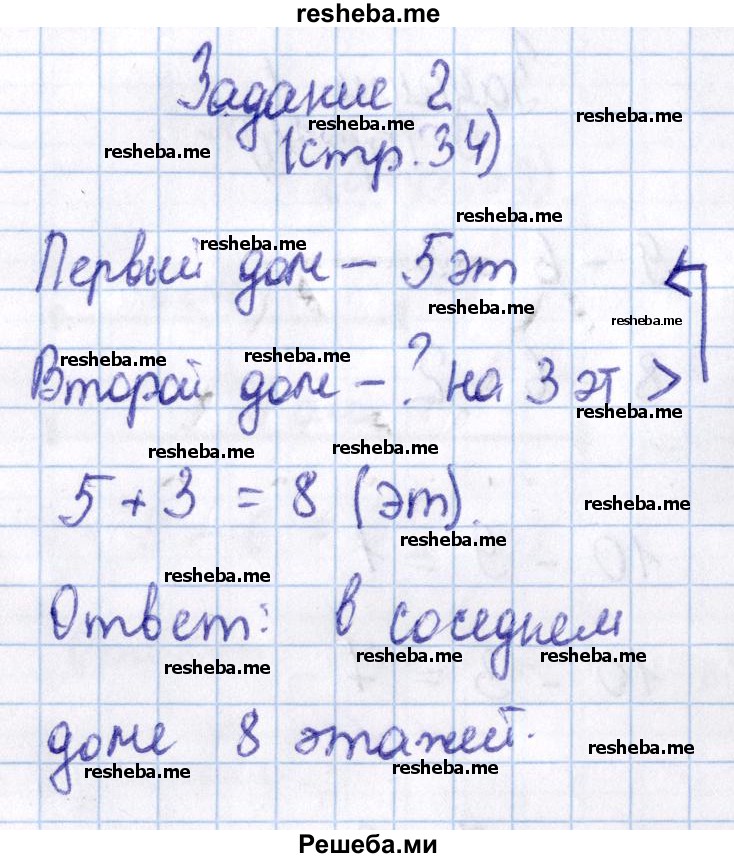 resheba.me
Задание 2
resheba.me
resheba.me
resheba.me
(стр. 34)
resheba.me
resheba.me
Первый дом – 5 эт
resheba.me
resheba.me
resheba.me
resheba.me
Второй дом – ? на 3 эт >
resheba.me
resheba.me
resheba.me
5 + 3 = 8 (эт).
resheba.me
resheba.me
resheba.me
Ответ: в соседнем
resheba.me
resheba.me
resheba.me
доме 8 этажей.
resheba.me
resheba.me
resheba.me
Решеба.ми